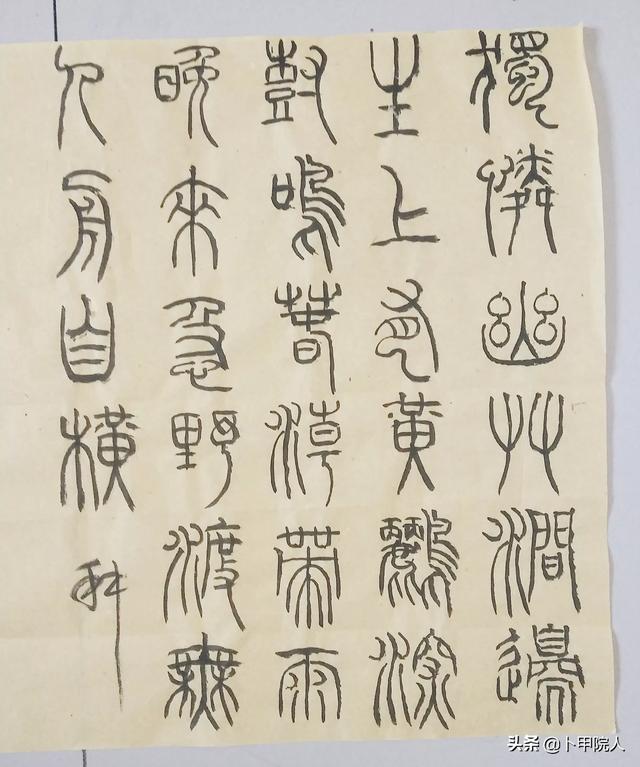 獨憐幽艸澗邊
生上有黃鸝深
尌鳴萅潮帶雨
晚來急野渡無
人舟自橫
头条 @卜甲院人